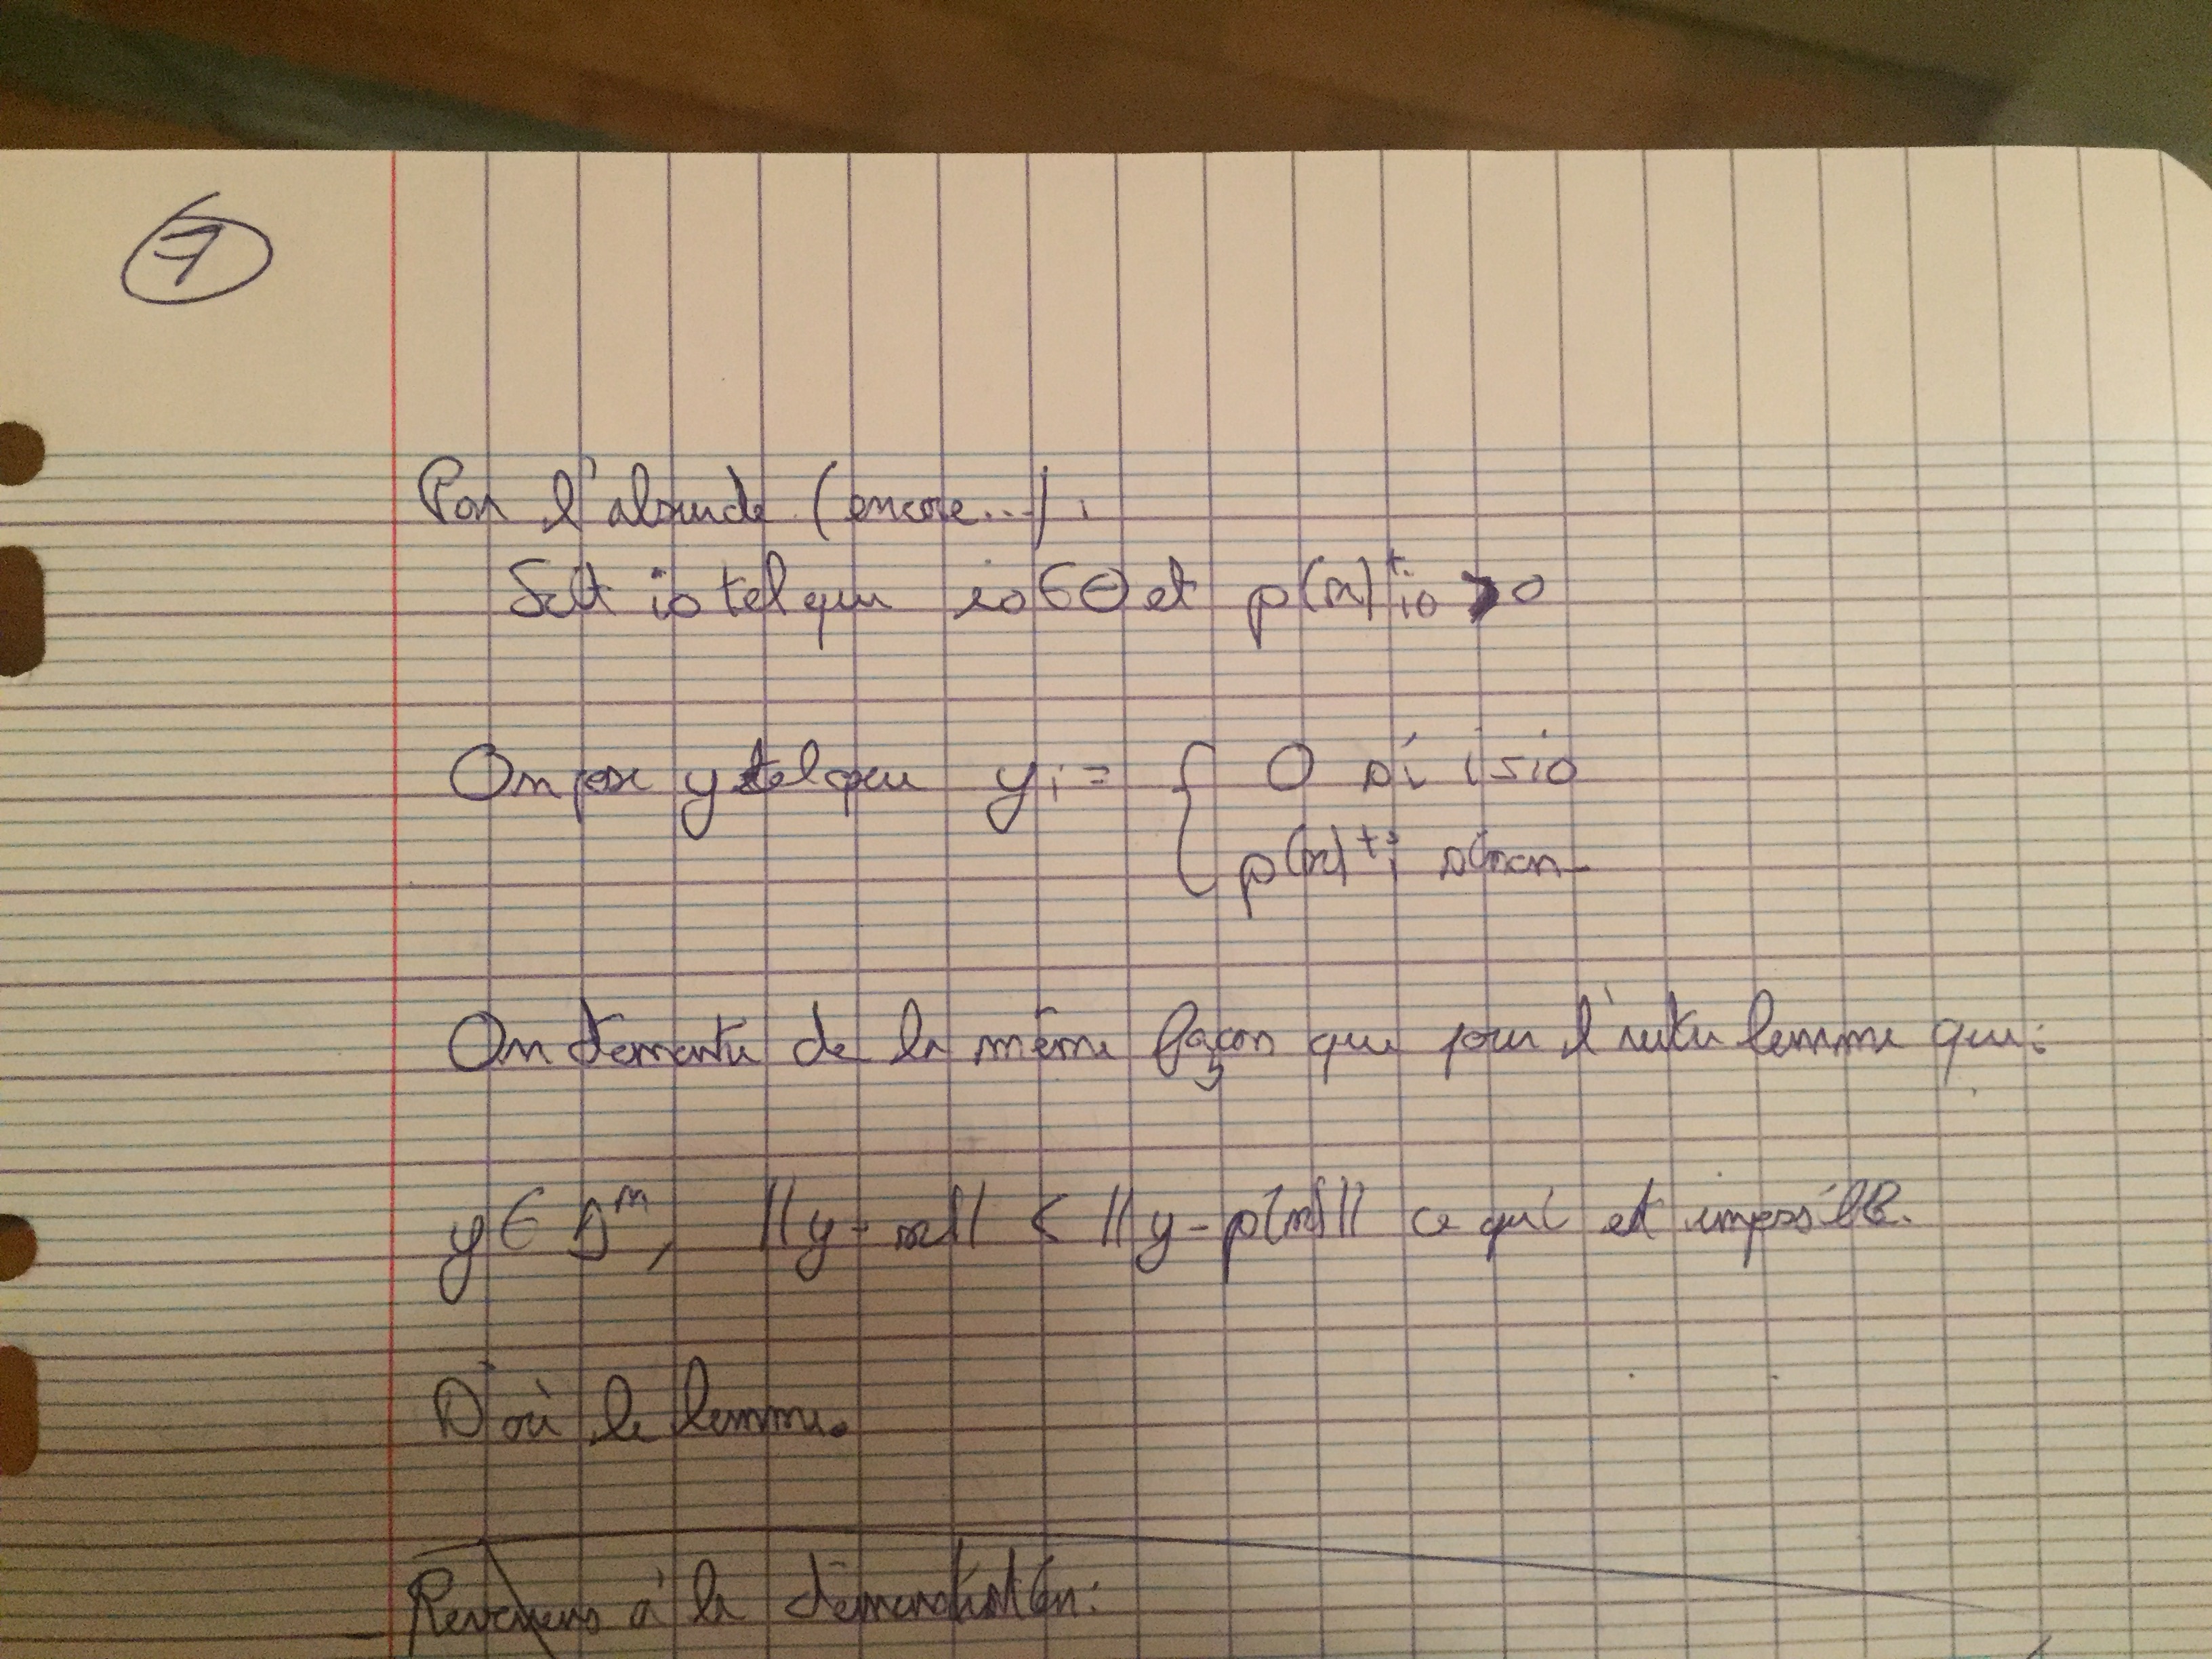 7
Par l'absurde (encore...).
Soit i0 tel que i0 ∈ Θ et p(x)⁺i0 > 0
On pose y tel que yi = { 0 si i = i0
p(x)⁺i sinon.
On démontre de la même façon que pour l'autre lemme que :
y ∈ Δⁿ, ||y-x|| < ||y-p(x)|| ce qui est impossible.
D'où le lemme.
Revenons à la démonstration.